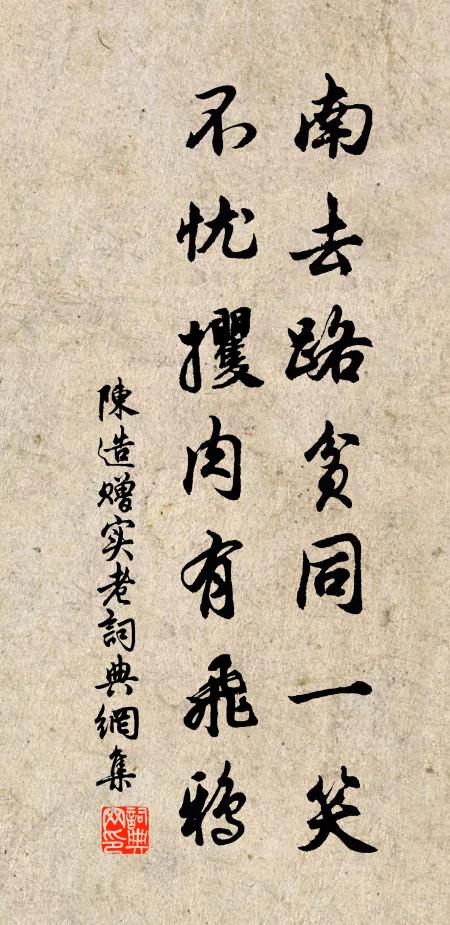 南去路貧同一笑
不忧攫肉有飛鴉
陳造赠实老詞典網集
詞典网印